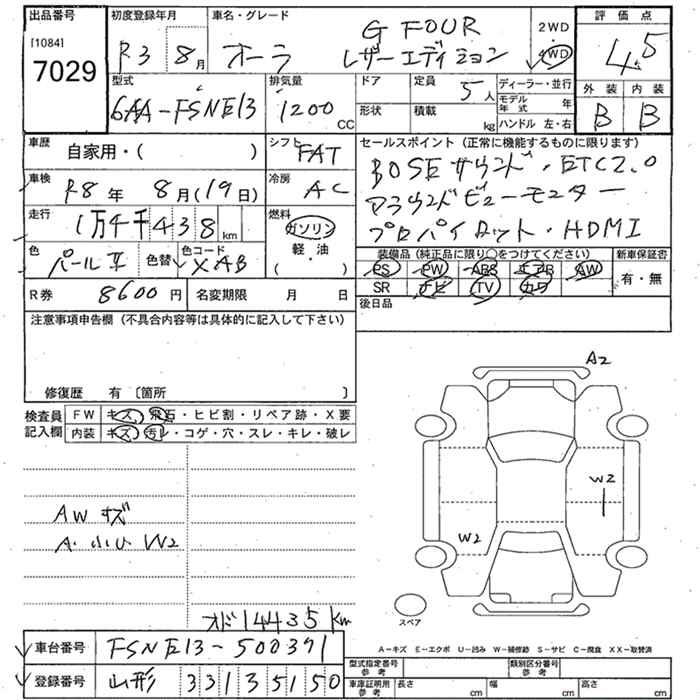 出品番号 初度登録年月 車名・グレード G FOUR 2WD 評価点
[1084] R3 8月 オーラ レザーエディション 4WD 4.5
7029
型式 排気量 ドア 定員 5人 ディーラー・並行 外装 内装
6AA-FSNE13 1200 CC 形状 積載 kg モデル年式 年 B B
ハンドル 左・右
車歴 シフト セールスポイント(正常に機能するものに限ります)
自家用・( ) FAT BOSEサウンド・ETC2.0
車検 R8年 8月(19日) 冷房 AC アラウンドビューモニター
走行 1万4千438km 燃料 ガソリン プロパイロット・HDMI
色 パールII 色替 色コード XAB 軽・油 ( ) 装備品(純正品に限り○をつけてください) 新車保証書
PS PW ABS エアB AW 有・無
SR ナビ TV カワ
R券 8600円 名変期限 月 日 後日品
注意事項申告欄(不具合内容等は具体的に記入して下さい)
修復歴 有〔箇所 〕
検査員記入欄 FW キズ・飛石・ヒビ割・リペア跡・X要
内装 キズ・汚レ・コゲ・穴・スレ・キレ・破レ
A2
W2
W2
AW キズ
A・小ひ W2
オド 14435km
スペア
A-キズ E-エクボ U-凹み W-補修跡 S-サビ C-腐食 XX-取替済
車台番号 FSNE13-500391
登録番号 山形 331 3 5150
型式指定番号 参考 類別区分番号 参考
車庫証明用 参考 長さ cm 幅 cm 高さ cm